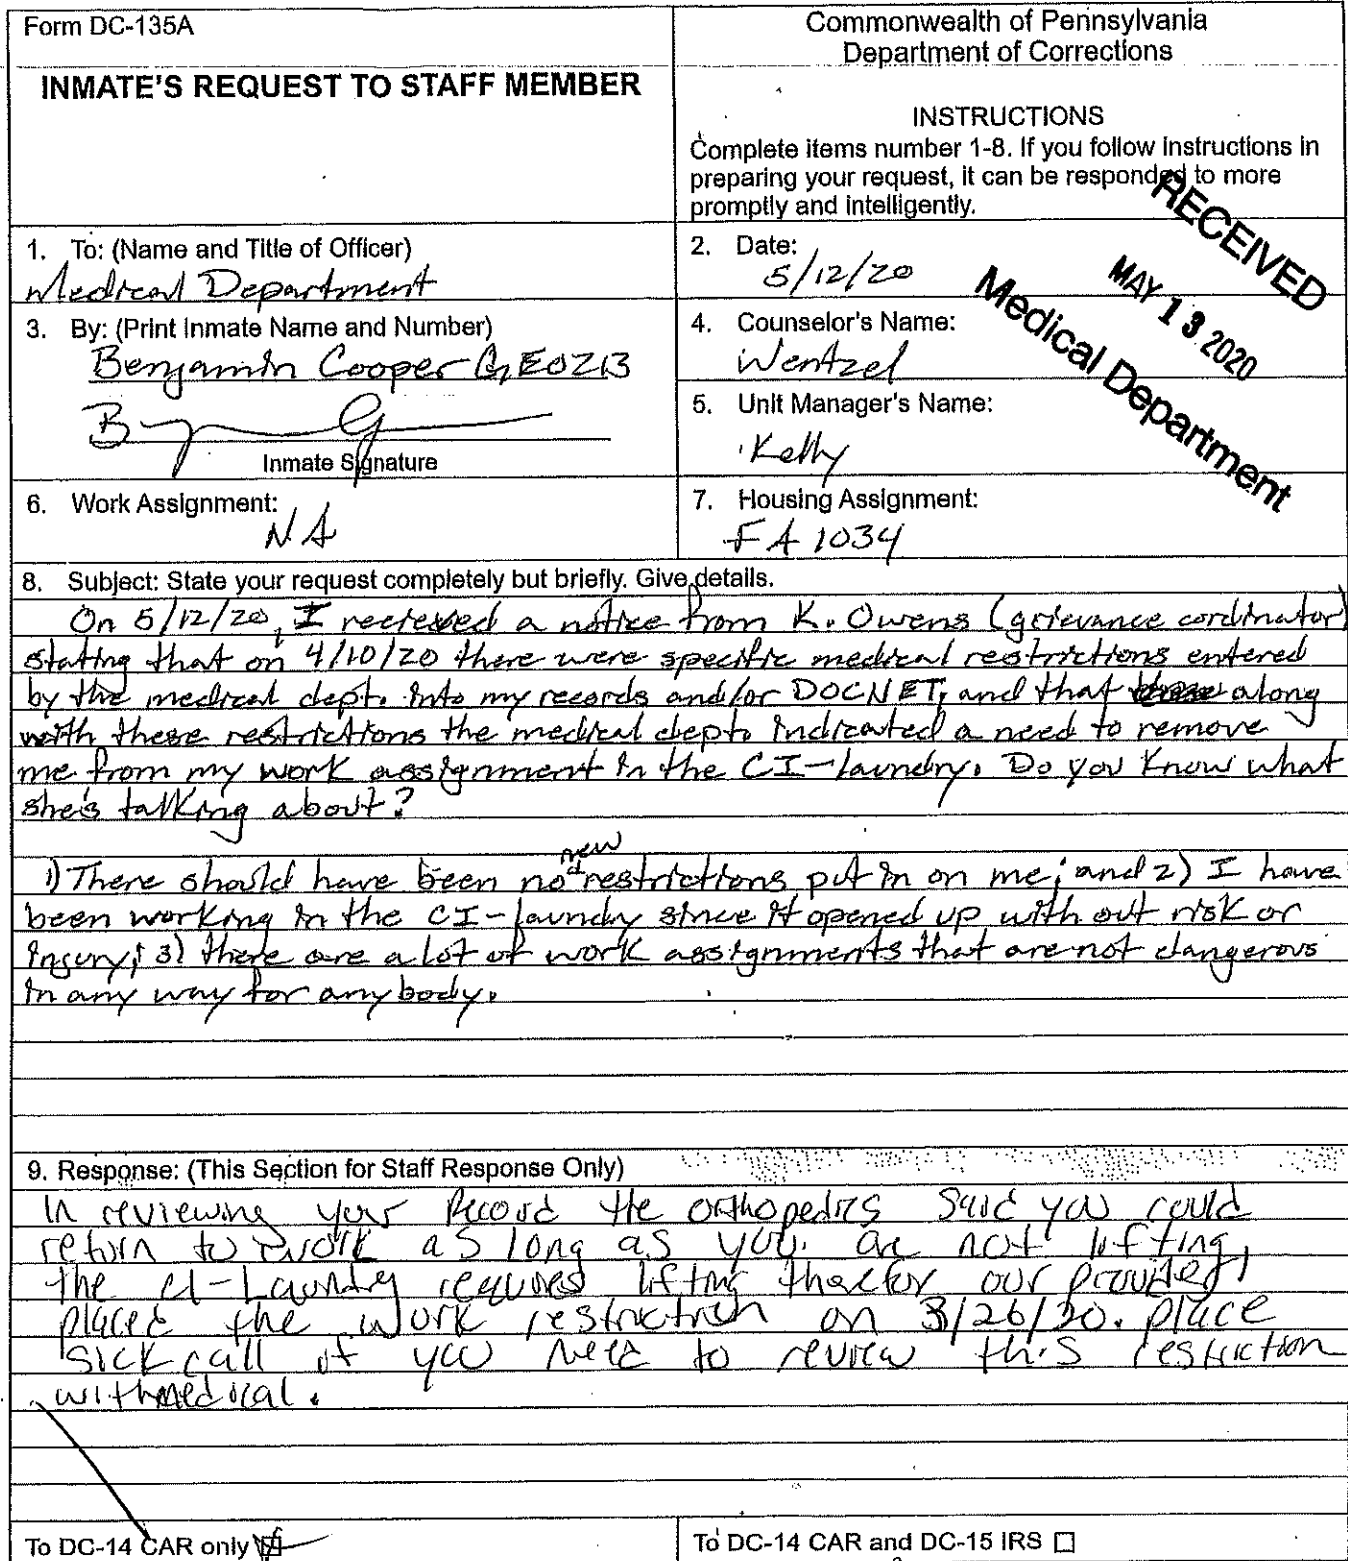 Form DC-135A
Commonwealth of Pennsylvania
Department of Corrections
INMATE'S REQUEST TO STAFF MEMBER
INSTRUCTIONS
Complete items number 1-8. If you follow instructions in
preparing your request, it can be responded to more
promptly and intelligently.
RECEIVED
MAY 13 2020
Medical Department
1. To: (Name and Title of Officer)
Medical Department
2. Date:
5/12/20
3. By: (Print Inmate Name and Number)
Benjamin Cooper
Inmate Signature
4. Counselor's Name:
Wentzel
5. Unit Manager's Name:
Kelly
6. Work Assignment:
NA
7. Housing Assignment:
FA 1034
8. Subject: State your request completely but briefly. Give details.
On 5/12/20, I recieved a notice from K. Owens (grievance cordinator)
stating that on 4/10/20 there were specific medical restrictions entered
by the medical dept. into my records and/or DOCNET, and that along
with these restrictions the medical dept. indicated a need to remove
me from my work assignment in the CI-laundry. Do you know what
she's talking about?
1) There should have been no new restrictions put in on me; and 2) I have
been working in the CI-laundry since it opened up with out risk or
injury; 3) there are a lot of work assignments that are not dangerous
in any way for anybody.
9. Response: (This Section for Staff Response Only)
In reviewing your Record the orthopedics said you could
return to work as long as you are not lifting,
the CI-Laundry requires lifting therefor our provider
placed the work restriction on 3/26/20. place
sick call if you need to review this restriction
with medical.
To DC-14 CAR only
To DC-14 CAR and DC-15 IRS ☐